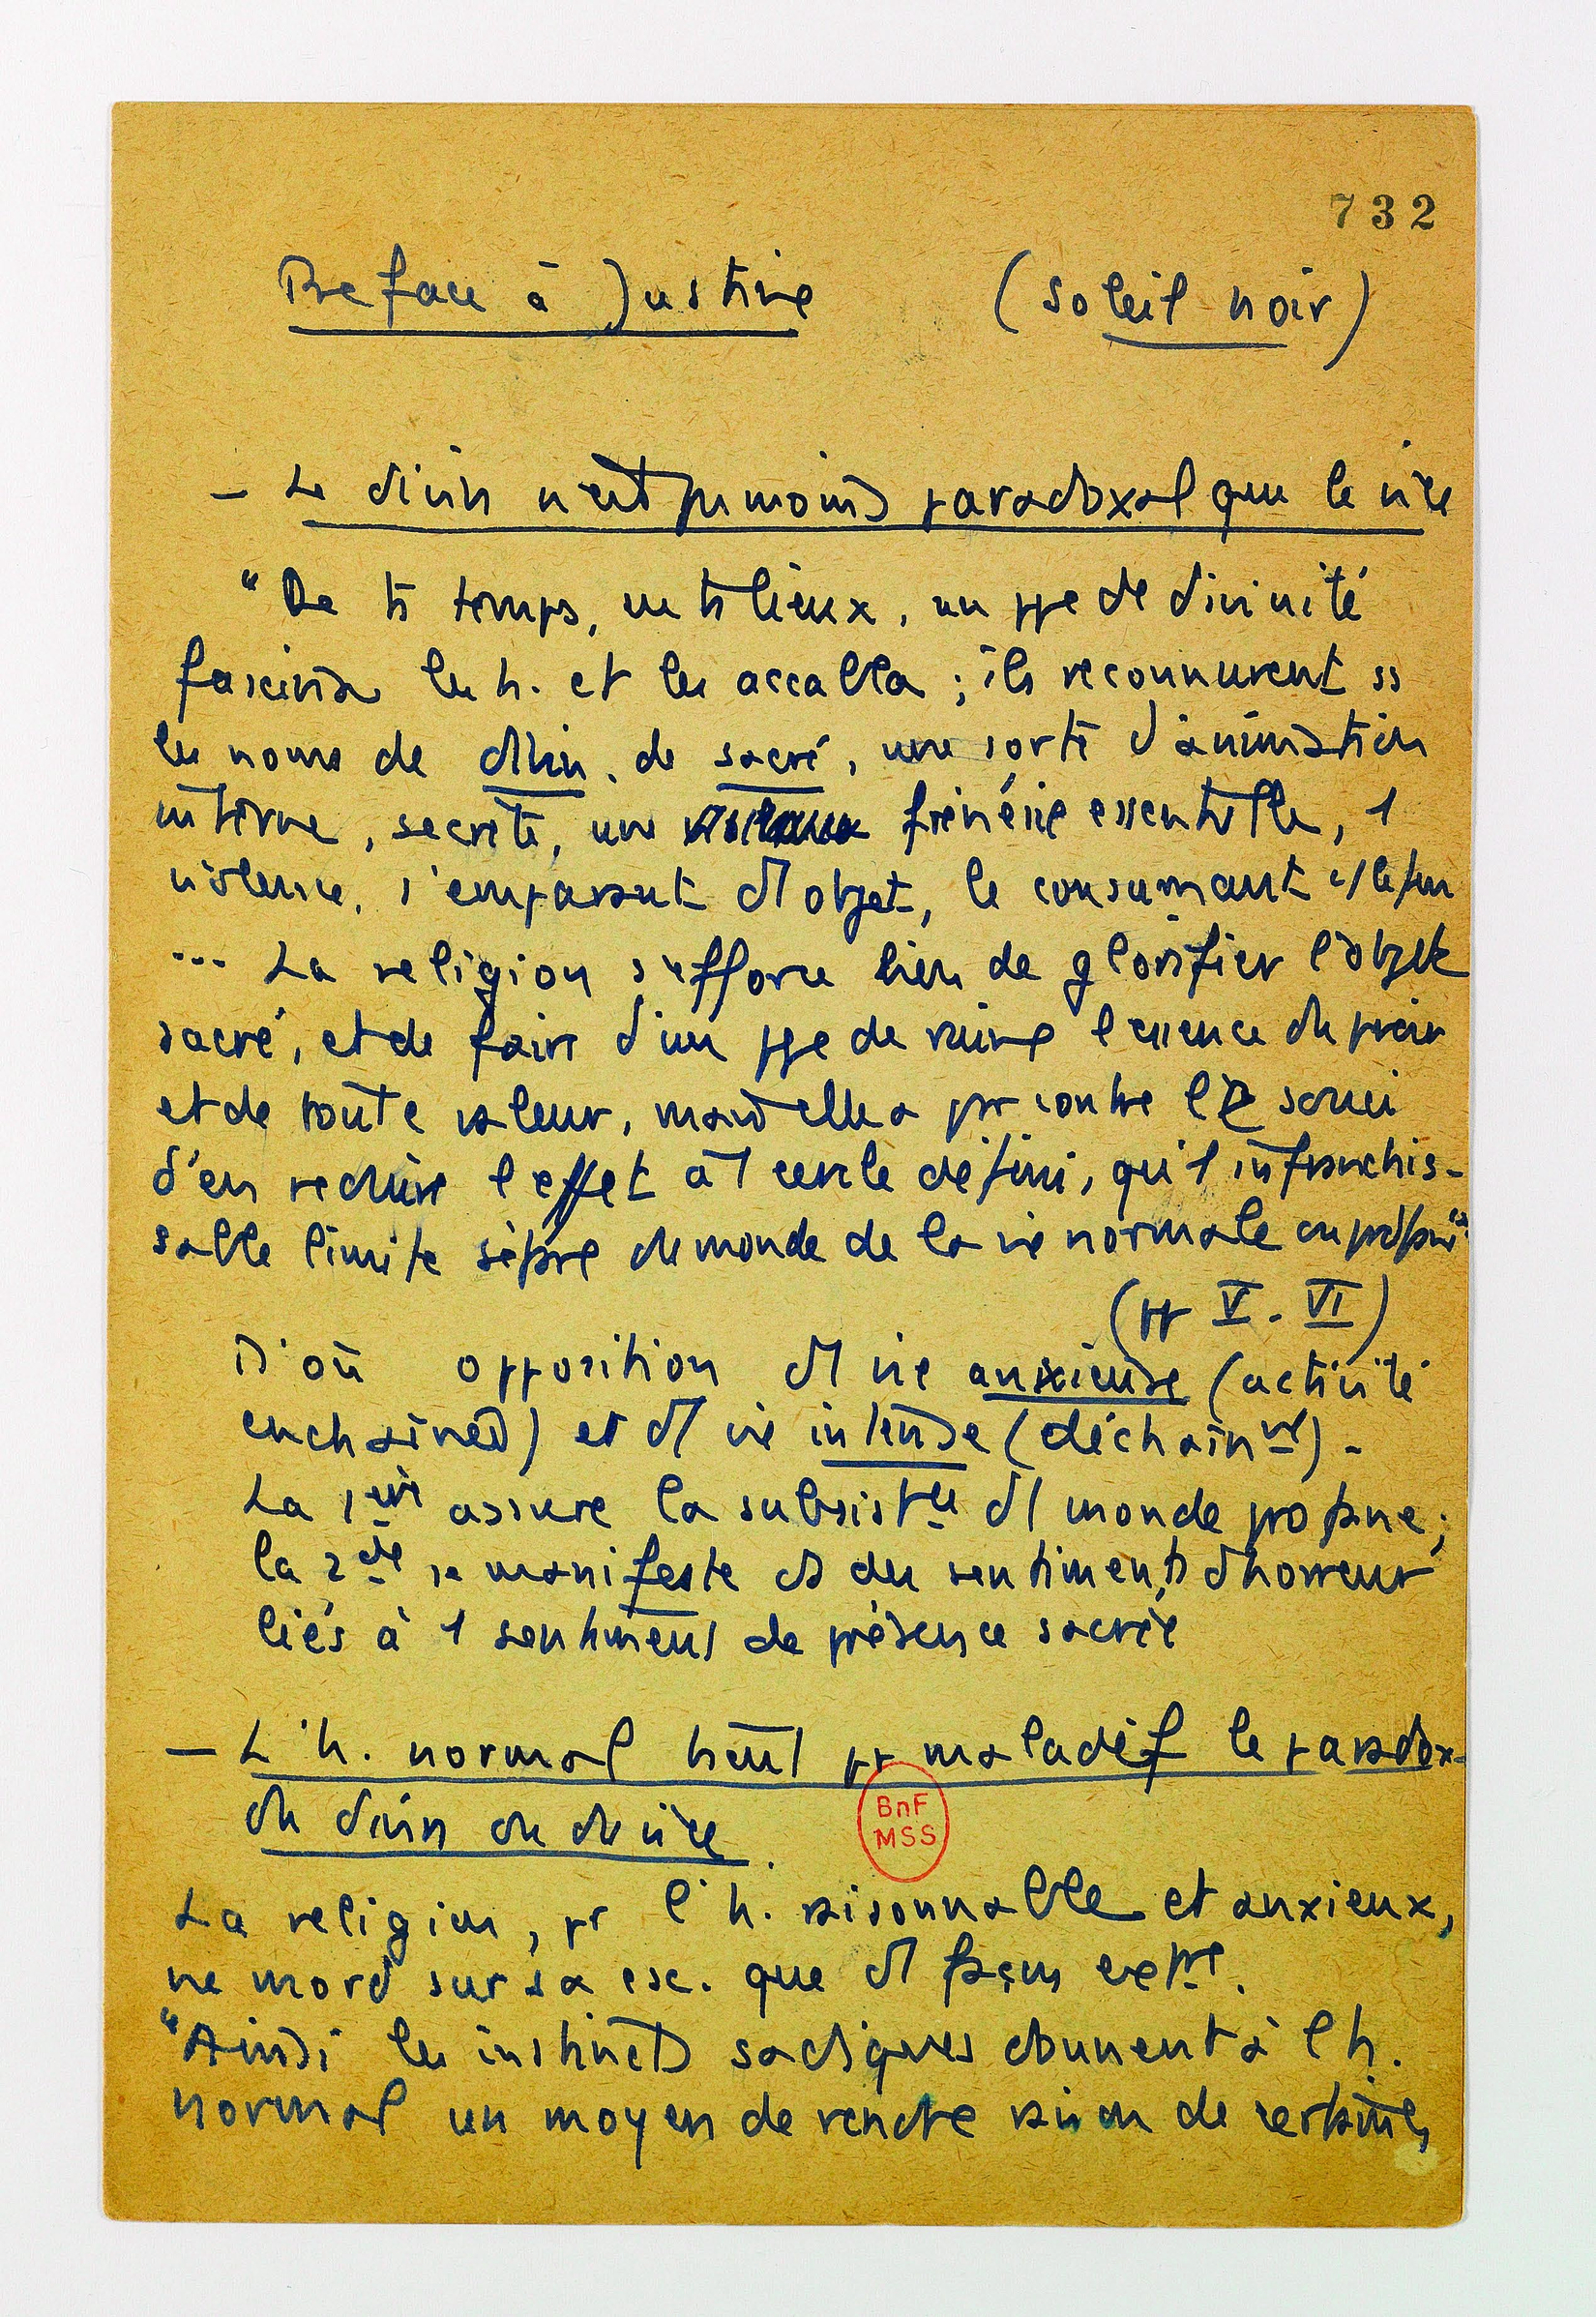 732
Preface à Justine (Soleil noir)
— Le divin n'est pas moins paradoxal que le vice
"De ts temps, en ts lieux, un ppe de divinité
fascina les h. et les accabla ; ils reconnurent ss
les noms de divin, de sacré, une sorte d'animation
interne, secrète, une frénésie essentielle, 1
violence, s'emparant d'1 objet, le consumant
... La religion s'efforce bien de glorifier l'objet
sacré, et de faire d'un ppe de ruine l'essence du pouvoir
et de toute valeur, mais elle a par contre le souci
d'en réduire l'effet à 1 cercle défini, qu'1 infranchis-
sable limite sépare du monde de la vie normale ou profane"
(pp V - VI)
D'où opposition d'1 vie anxieuse (activité
enchainée) et d'1 vie intense (déchainnt) -
La 1ère assure la subsistce d'1 monde profane ;
la 2de se manifeste ds des sentiments d'horreur
liés à 1 sentiment de présence sacrée
— L'h. normal tient pr maladif le paradox-
du divin ou du vice.
BnF
MSS
La religion, pr l'h. raisonnable et anxieux,
ne mord sur sa csc. que d'1 façon extre.
"Ainsi les instincts sadiques donnent à l'h.
normal un moyen de rendre raison de certaines